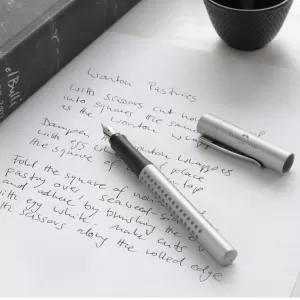 elBulli
Wonton Pastries
with scissors cut nori
into squares the same
as the wonton wrapp
Dampen wonton wrappers
with egg place
the square of top
Fold the square of nori
pastry over seaweed
and adhere by brushing the
with egg white. Make cuts
with scissors along the rolled edge